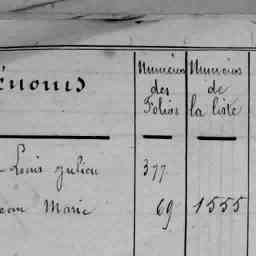 énoms Numéros des Folios Numéros de la liste
Louis Julien 377
ean Marie 69 1555